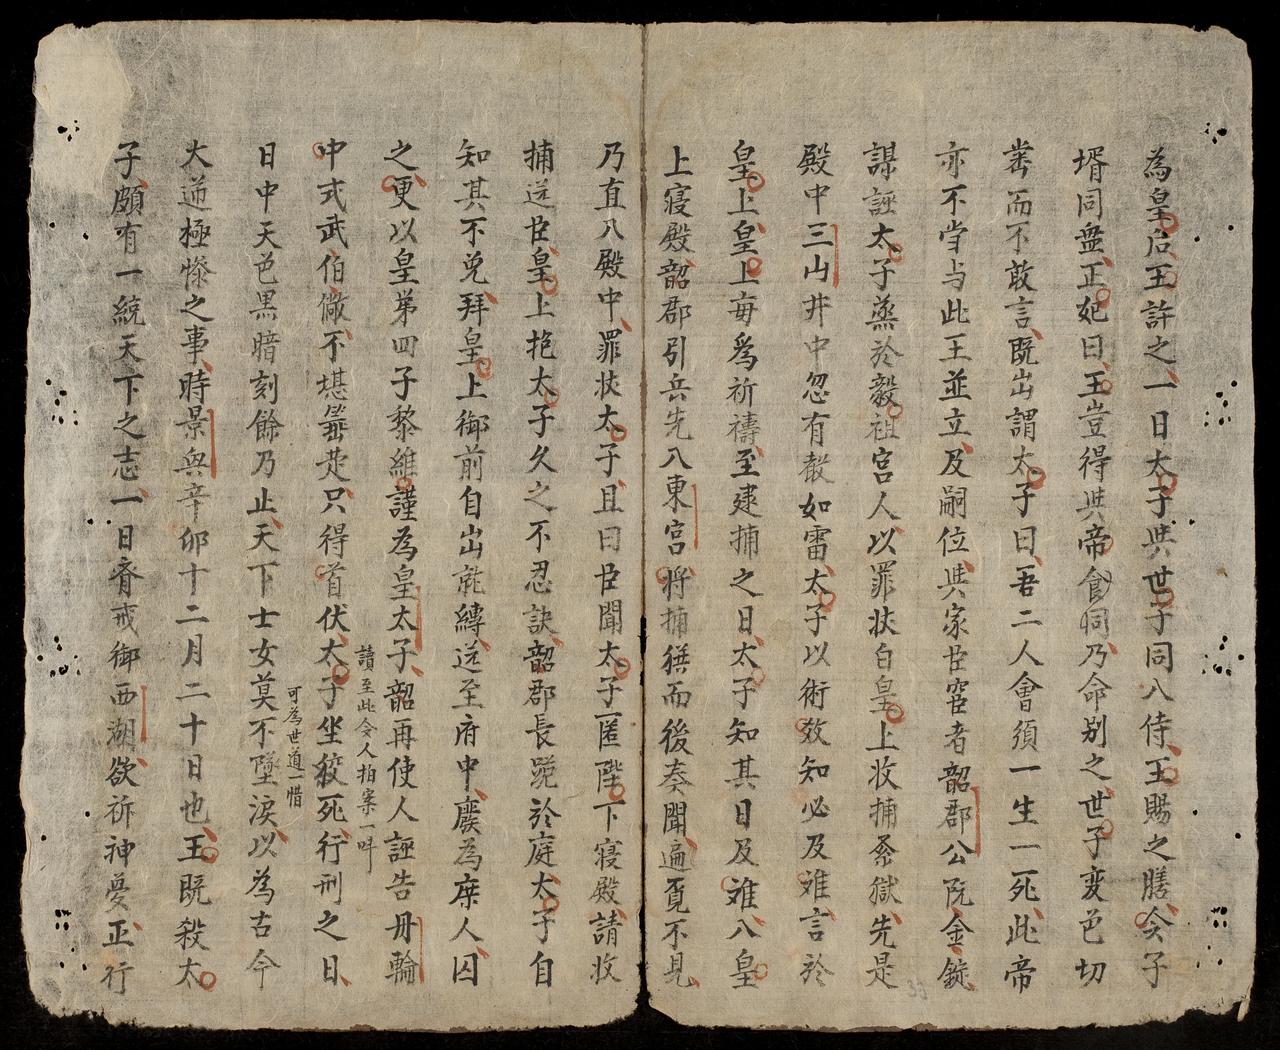 為皇后王許之一日太子與世子同入侍王賜之膳令子
壻同盤正妃曰王豈得與帝食同乃命別之世子変色切
耑而不敢言既出謂太子曰吾二人會須一生一死此帝
亦不當与此王並立及嗣位與家臣宦者韶郡公阮金錠
謀誣太子烝於毅祖宮人以罪狀白皇上收捕系獄先是
殿中三山井中忽有聲如雷太子以術效知必及难言於
皇上皇上每爲祈禱至逮捕之日太子知其日及难入皇
上寝殿韶郡引兵先入東宮将捕𫉬而後奏聞遍覓不見
乃直入殿中罪狀太子且曰臣聞太子匿陛下寝殿請收
捕送臣皇上抱太子久之不忍訣韶郡長跪於庭太子自
知其不免拜皇上御前自出就縛送至府中廢為庶人囚
之更以皇弟四子黎維謹為皇太子韶再使人誣告毋輪
中式武伯儆不堪箠楚只得首伏太子坐絞死行刑之日
讀至此令人拍案一呌
可為世道一惜
日中天色黑暗刻餘乃止天下士女莫不墜涙以為古今
大逆極慘之事時景興辛卯十二月二十日也王既殺太
子頗有一統天下之志一日齊戒御西湖欲祈神憂正行